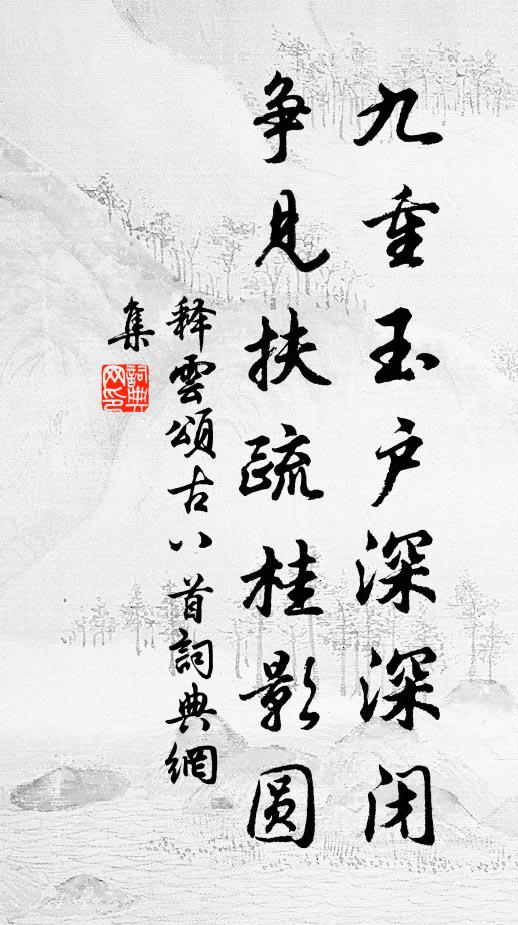 九重玉户深深闭
争见扶疏桂影圆
释雲頌古八首詞典網
集
詞典網印